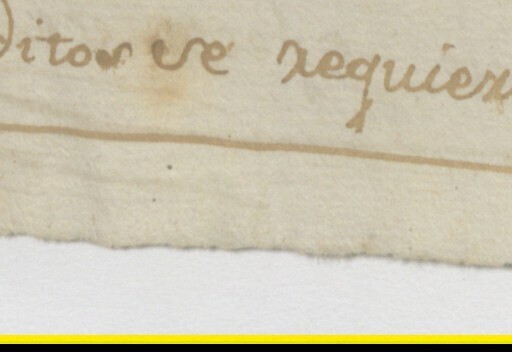 ditor se requier